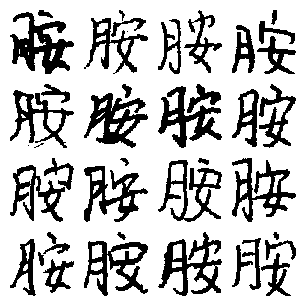 胺胺胺胺
胺胺胺胺
胺胺胺胺
胺胺胺胺